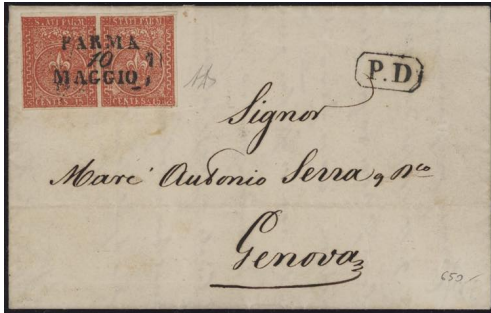 STATI PARM. STATI PARM.
PARMA
10
MAGGIO
CENTES. 15 CENTES. 15
P.D
Signor
Marc' Antonio Serra q
Genova
650